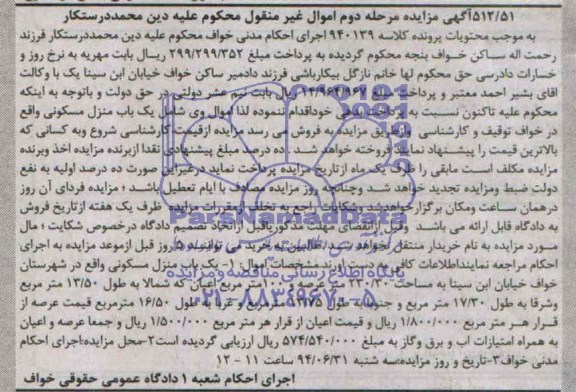 ۵۱۲/۵۱آگهی مزایده مرحله دوم اموال غیر منقول محکوم علیه دین محمددرستکار
به موجب محتویات پرونده کلاسه ۹۴۰۱۳۹ اجرای احکام مدنی خواف محکوم علیه دین محمددرستکار فرزند
رحمت اله ساکن خواف بنجه محکوم گردیده به پرداخت مبلغ ۲۹۹/۲۹۹/۳۵۲ ریال بابت مهریه به نرخ روز و
خسارات دادرسی حق محکوم لها خانم نازگل بیکارباشی فرزند دادمیر ساکن خواف خیابان ابن سینا یک با وکالت
اقای بشیر احمد معتبر و پرداخت مبلغ ۱۴/۹۶۴/۹۶۷ ریال بابت نیم عشر دولتی در حق دولت و باتوجه به اینکه
محکوم علیه تاکنون نسبت به پرداخت بدهی خوداقدام ننموده لذا اموال وی شامل یک باب منزل مسکونی واقع
در خواف توقیف و کارشناسی وازطریق مزایده به فروش می رسد مزایده ازقیمت کارشناسی شروع وبه کسانی که
بالاترین قیمت را پیشنهاد نمایند فروخته خواهد شد ده درصد مبلغ پیشنهادی نقدا ازبرنده مزایده اخذ وبرنده
مزایده مکلف است مابقی را ظرف یک ماه ازتاریخ مزایده پرداخت نماید درغیراین صورت ده درصد اولیه به نفع
دولت ضبط ومزایده تجدید خواهد شد وچنانچه روز مزایده مصادف با ایام تعطیل باشد ؛ مزایده فردای آن روز
درهمان ساعت ومکان برگزار خواهدشد وشکایات راجع به تخلف ازمقررات مزایده ظرف یک هفته ازتاریخ فروش
به دادگاه قابل ارائه می باشد وقبل ازانقضای مهلت مذکور یاقبل ازاتخاذ تصمیم دادگاه درخصوص شکایت ؛ مال
مورد مزایده به نام خریدار منتقل نخواهد شد/طالبین به خرید می توانند ۵ روز قبل ازموعد مزایده به اجرای
احکام مراجعه نمایندااطلاعات کافی به دست آورند مشخصات اموال : ۱- یک باب منزل مسکونی واقع در شهرستان
خواف خیابان ابن سینا به مساحت ۲۳۰/۳۰ متر عرصه و ۱۰۰متر مربع اعیان که شمالا به طول ۱۳/۵۰ متر مربع
وشرقا به طول ۱۷/۳۰ متر مربع و جنوبا به طول مترمربع و غربا به طول ۱۶/۵۰ مترمربع قیمت عرصه از
قرار هر متر مربع ۱/۸۰۰/۰۰۰ ریال و قیمت اعیان از قرار هر متر مربع ۱/۵۰۰/۰۰۰ ریال و جمعا عرصه و اعیان
به همراه امتیازات اب و برق وگاز به مبلغ ۵۷۴/۵۴۰/۰۰۰ ریال ارزیابی گردیده است۲-محل مزایده:اجرای احکام
مدنی خواف۳-تاریخ و روز مزایده:سه شنبه ۹۴/۰۶/۳۱ ساعت ۱۱ - ۱۲
اجرای احکام شعبه ۱ دادگاه عمومی حقوقی خواف
ParsNamadData
پایگاه اطلاع رسانی مناقصه و مزایده
۰۲۱-۸۸۳۴۹۶۷۰-۵